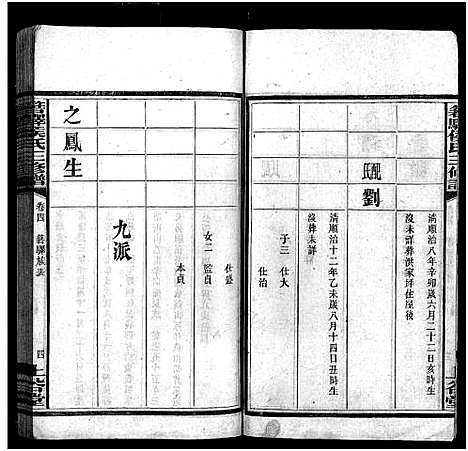 清順治八年辛卯歲六月二十二日亥時生
沒未詳葬洪家坪住屋後
配劉
清順治十二年乙未歲八月十四日丑時生
沒葬未詳
子三 仕大
仕治
仕盛
女二 監貞
本貞
九派
之鳳生
三修譜
卷四
四
上谷堂